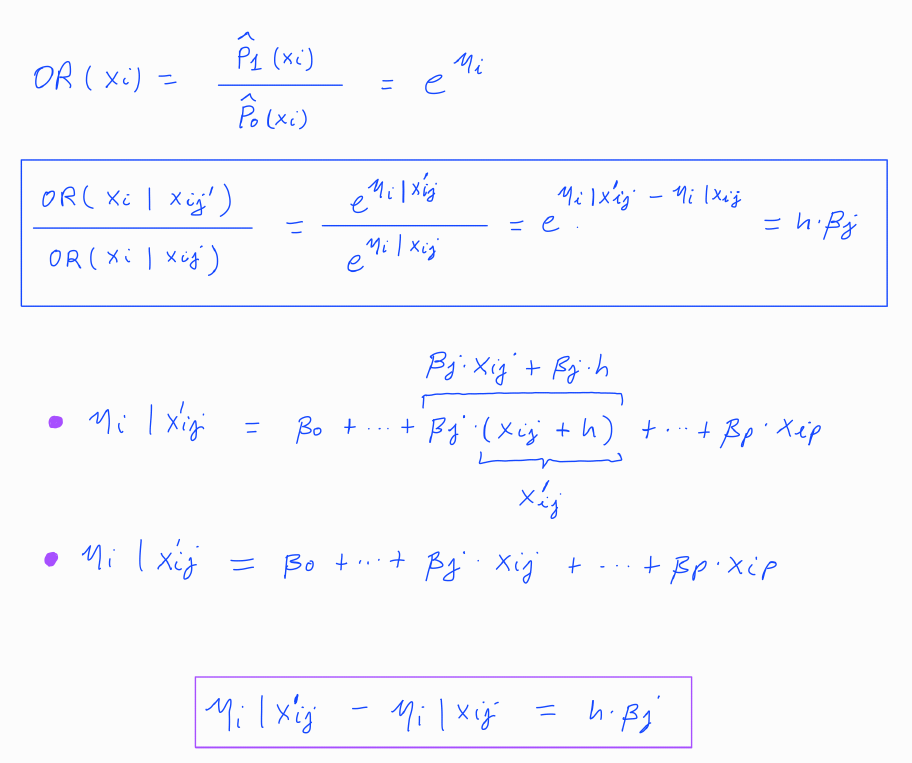 OR(xi) = P̂1(xi) / P̂0(xi) = e^ηi
OR(xi | xij') / OR(xi | xij) = e^(ηi|x'ij) / e^(ηi|xij) = e^(ηi|x'ij − ηi|xij) = h·βj
βj·xij + βj·h
• ηi | x'ij = β0 + ··· + βj·(xij + h) + ··· + βp·xip
x'ij
• ηi | x'ij = β0 + ··· + βj·xij + ··· + βp·xip
ηi | x'ij − ηi | xij = h·βj